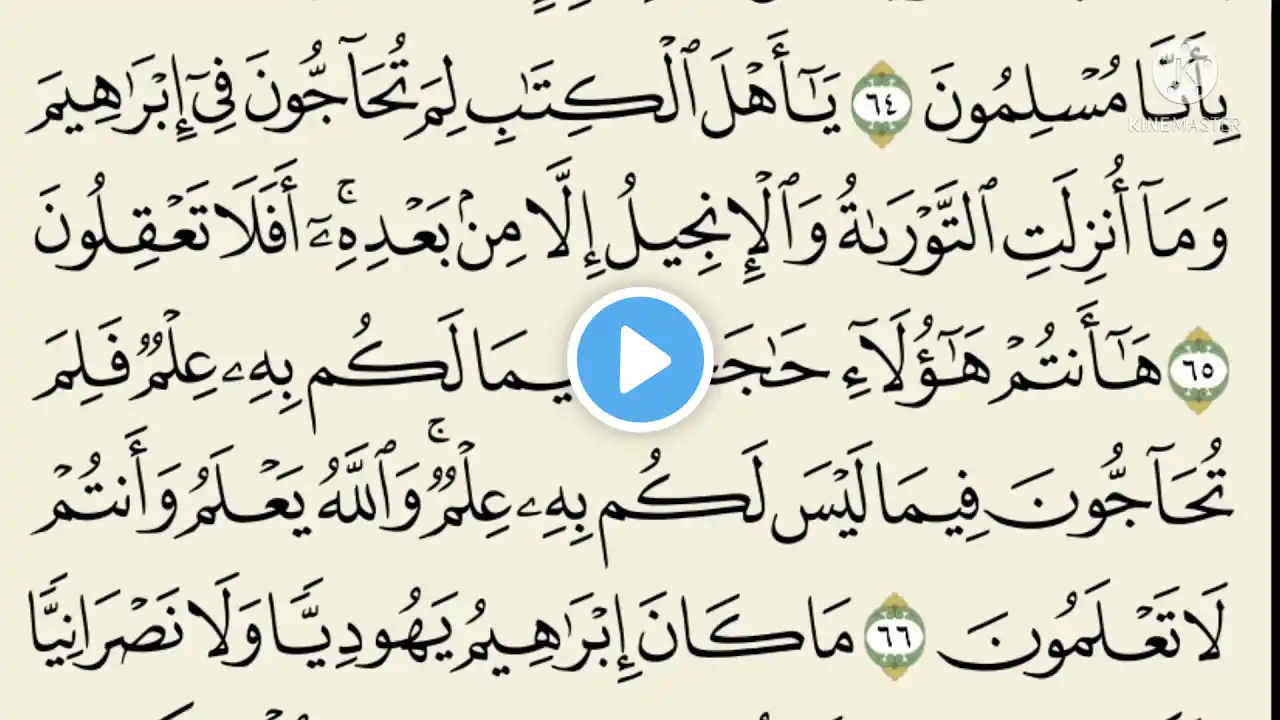 بِأَنَّا مُسْلِمُونَ ٦٤ يَٰٓأَهْلَ ٱلْكِتَٰبِ لِمَ تُحَآجُّونَ فِىٓ إِبْرَٰهِيمَ
KINEMASTER
وَمَآ أُنزِلَتِ ٱلتَّوْرَىٰةُ وَٱلْإِنجِيلُ إِلَّا مِنۢ بَعْدِهِۦٓ ۚ أَفَلَا تَعْقِلُونَ
٦٥ هَٰٓأَنتُمْ هَٰٓؤُلَآءِ لَكُم بِهِۦ عِلْمٌ فَلِمَ
تُحَآجُّونَ فِيمَا لَيْسَ لَكُم بِهِۦ عِلْمٌ ۚ وَٱللَّهُ يَعْلَمُ وَأَنتُمْ
لَا تَعْلَمُونَ ٦٦ مَا كَانَ إِبْرَٰهِيمُ يَهُودِيًّا وَلَا نَصْرَانِيًّا